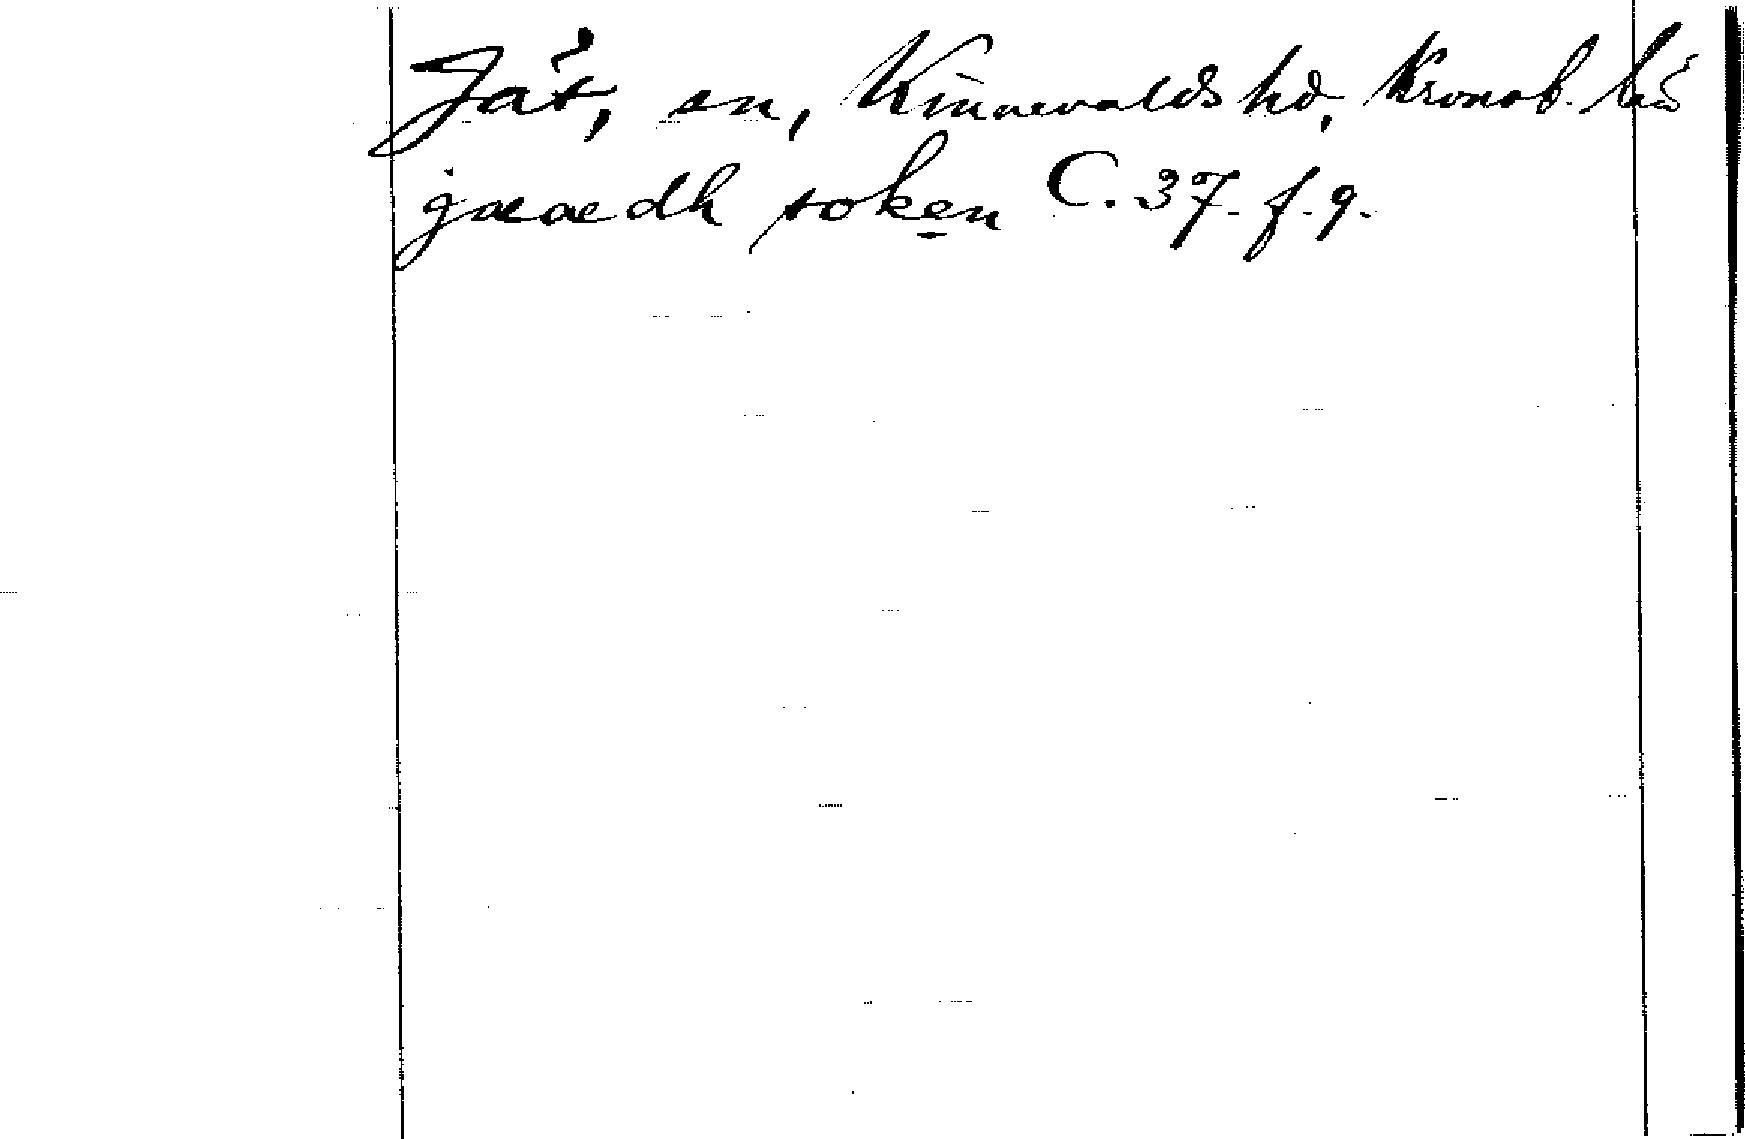 Jät, sn, Kinnevalds hd, Kronob. län
jææedh soken C. 37. f. 9.